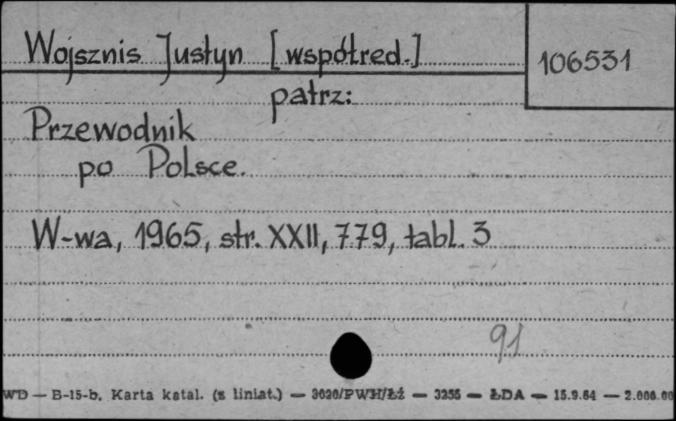 Wojsznis Justyn [współred.]
106531
patrz:
Przewodnik
po Polsce.
W-wa, 1965, str. XXII, 779, tabl. 3
91
WD — B-15-b. Karta katal. (z liniat.) — 3020/PWH/Łź — 3255 — ŁDA — 15.9.64 — 2.000.00